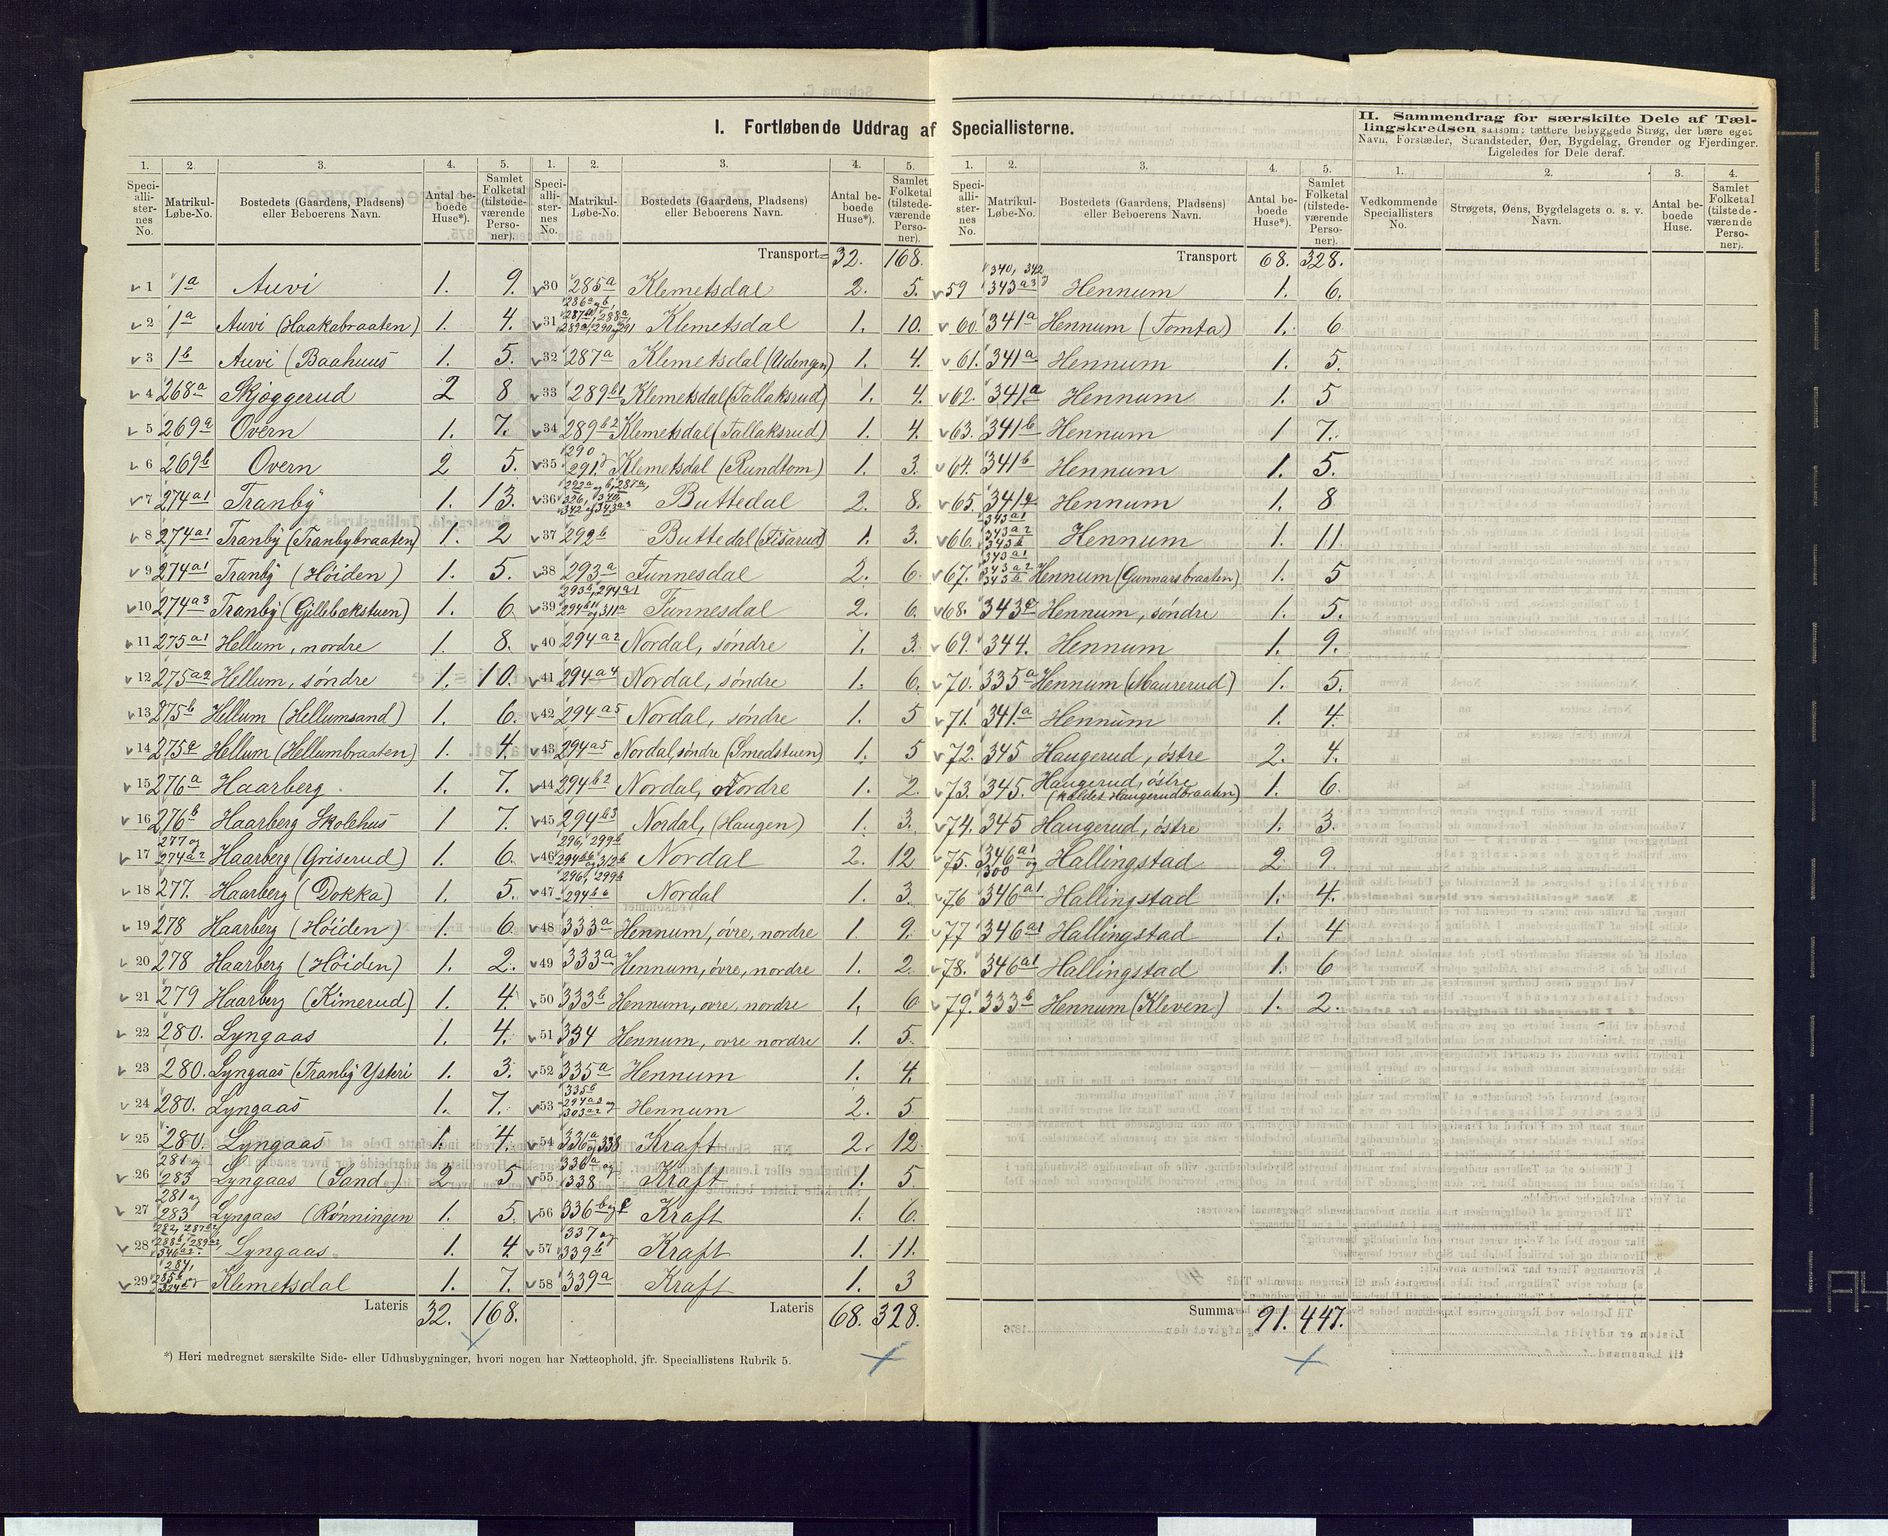 I. Fortløbende Uddrag af Speciallisterne.
II. Sammendrag for særskilte Dele af Tæl-
lingskredsen saasom: tættere bebyggede Strøg, der bære eget
Navn, Forstæder, Strandsteder, Øer, Bygdelag, Grender og Fjerdinger.
Ligeledes for Dele deraf.
1. 2. 3. 4. 5.
Speciallisternes No. Matrikul-Løbe-No. Bostedets (Gaardens, Pladsens) eller Beboerens Navn. Antal beboede Huse*). Samlet Folketal (tilstedeværende Personer).
1 1a Auvi 1. 9.
2 1a Auvi (Haakabraaten) 1. 4.
3 1b Auvi (Baahuus 1. 5.
4 268a Skjøggerud 2 8
5 269a Overn 1. 7.
6 269b Overn 2 5.
7 274a1 Tranby 1. 13.
8 274a1 Tranby (Tranbybraaten) 1. 2
9 274a1 Tranby (Höiden) 1. 5.
10 274a3 Tranby (Gjillebækstuen) 1. 6.
11 275a1 Hellum, nordre 1. 8.
12 275a2 Hellum, söndre 1. 10.
13 275b Hellum (Hellumsand) 1. 6.
14 275a Hellum (Hellumbraaten) 1. 4.
15 276a Haarberg. 1. 7.
16 276b Haarberg Skolehus 1 7.
17 277 og 274a2 Haarberg (Griserud) 1. 6.
18 277. Haarberg (Dokka) 1. 5.
19 278 Haarberg (Höiden) 1. 6.
20 278 Haarberg (Höiden) 1. 2.
21 279 Haarberg (Kimerud) 1. 4.
22 280. Lyngaas 1. 4.
23 280. Lyngaas (Tranby Ysteri 1. 3.
24 280. Lyngaas 1. 7.
25 280. Lyngaas 1. 4.
26 281 og 283 Lyngaas (Sand) 2 5
27 281 og 283 Lyngaas (Rönningen 1. 5.
28 282, 287a2, 288b, 289a2, 346a2. Lyngaas 1. 4.
29 284, 285b 324b Klemetsdal 1. 7.
Lateris 32. 168.
*) Heri medregnet særskilte Side- eller Udhusbygninger, hvori nogen har Natteophold, jfr. Speciallistens Rubrik 5.
1. 2. 3. 4. 5.
Speciallisternes No. Matrikul-Løbe-No. Bostedets (Gaardens, Pladsens) eller Beboerens Navn. Antal beboede Huse*). Samlet Folketal (tilstedeværende Personer).
Transport 32. 168.
30 285a Klemetsdal 2. 5.
31 286a og b, 287a1, 288a, 289a, 290 og 291 Klemetsdal 1. 10.
32 287a Klemetsdal (Udengen) 1. 4.
33 289b1 Klemetsdal (Tallaksrud) 1. 4.
34 289b2 Klemetsdal (Tallaksrud) 1. 4.
35 290 291. Klemetsdal (Rundtom) 1. 3.
36 292a og b, 287a, 326, 340, 342 og 343a3 Buttedal 2. 8.
37 292b Buttedal (Fisarud) 1. 3.
38 293a Tunnesdal 2. 6.
39 293a, 294a1 294b11 og 311a Tunnesdal 2. 6.
40 294a2 Nordal, söndre 1. 3.
41 294a4 Nordal, söndre 1. 6.
42 294a5 Nordal, söndre 1. 5
43 294a5 Nordal, söndre (Smedstuen) 1. 5
44 294b2 Nordal, Nordre 1. 2.
45 294b3 Nordal, (Haugen) 1. 3.
46 296, 299b 294b6 og 312b Nordal 2. 12
47 296, 299b 294b6 Nordal 1. 3.
48 333a Hennum, övre, nordre 1. 9.
49 333a Hennum, övre, nordre 1. 2.
50 333b Hennum, ovre, nordre 1. 6
51 334 Hennum, ovre nordre 1. 5.
52 335a Hennum 1. 4.
53 335b 294a3 og 303a2 Hennum 2. 5
54 336a og 338 Kraft 2. 12.
55 336a og 338 Kraft 1. 5
56 336b og c Kraft 1. 6.
57 337 og 339b Kraft 1. 11.
58 339a Kraft 1. 3
Lateris 68. 328.
1. 2. 3. 4. 5.
Speciallisternes No. Matrikul-Løbe-No. Bostedets (Gaardens, Pladsens) eller Beboerens Navn. Antal beboede Huse*). Samlet Folketal (tilstedeværende Personer).
Transport 68. 328.
59 340, 342 343a3 Hennum 1. 6.
60. 341a Hennum (Tomta) 1. 6
61. 341a Hennum 1. 5.
62. 341a Hennum 1. 5
63. 341b Hennum 1 7.
64. 341b Hennum 1. 5.
65. 341 Hennum 1. 8
66. 343a1 343a2 343b Hennum 1. 11.
67. 343a1 343a2 343b Hennum (Gunnarsbraaten) 1. 5
68. 343 Hennum, söndre 1. 5.
69. 344. Hennum 1. 9.
70. 335a Hennum (Maurerud) 1. 5.
71. 341a Hennum 1. 4.
72. 345 Haugerud, östre 2. 4.
73. 345. Haugerud, östre (kaldet Haugerudbraaten) 1. 6.
74. 345 Haugerud, östre 1. 3.
75. 346a1 og 300 Hallingstad 2 9.
76 346a1 Hallingstad 1. 4.
77 346a1 Hallingstad 1. 4
78. 346a1 Hallingstad 1. 6
79. 333b Hennum (Kleven) 1. 2.
Summa 91. 447.
1. 2. 3. 4.
Vedkommende Speciallisters No. Strøgets, Øens, Bygdelagets o. s. v. Navn. Antal beboede Huse. Samlet Folketal (tilstedeværende Personer).